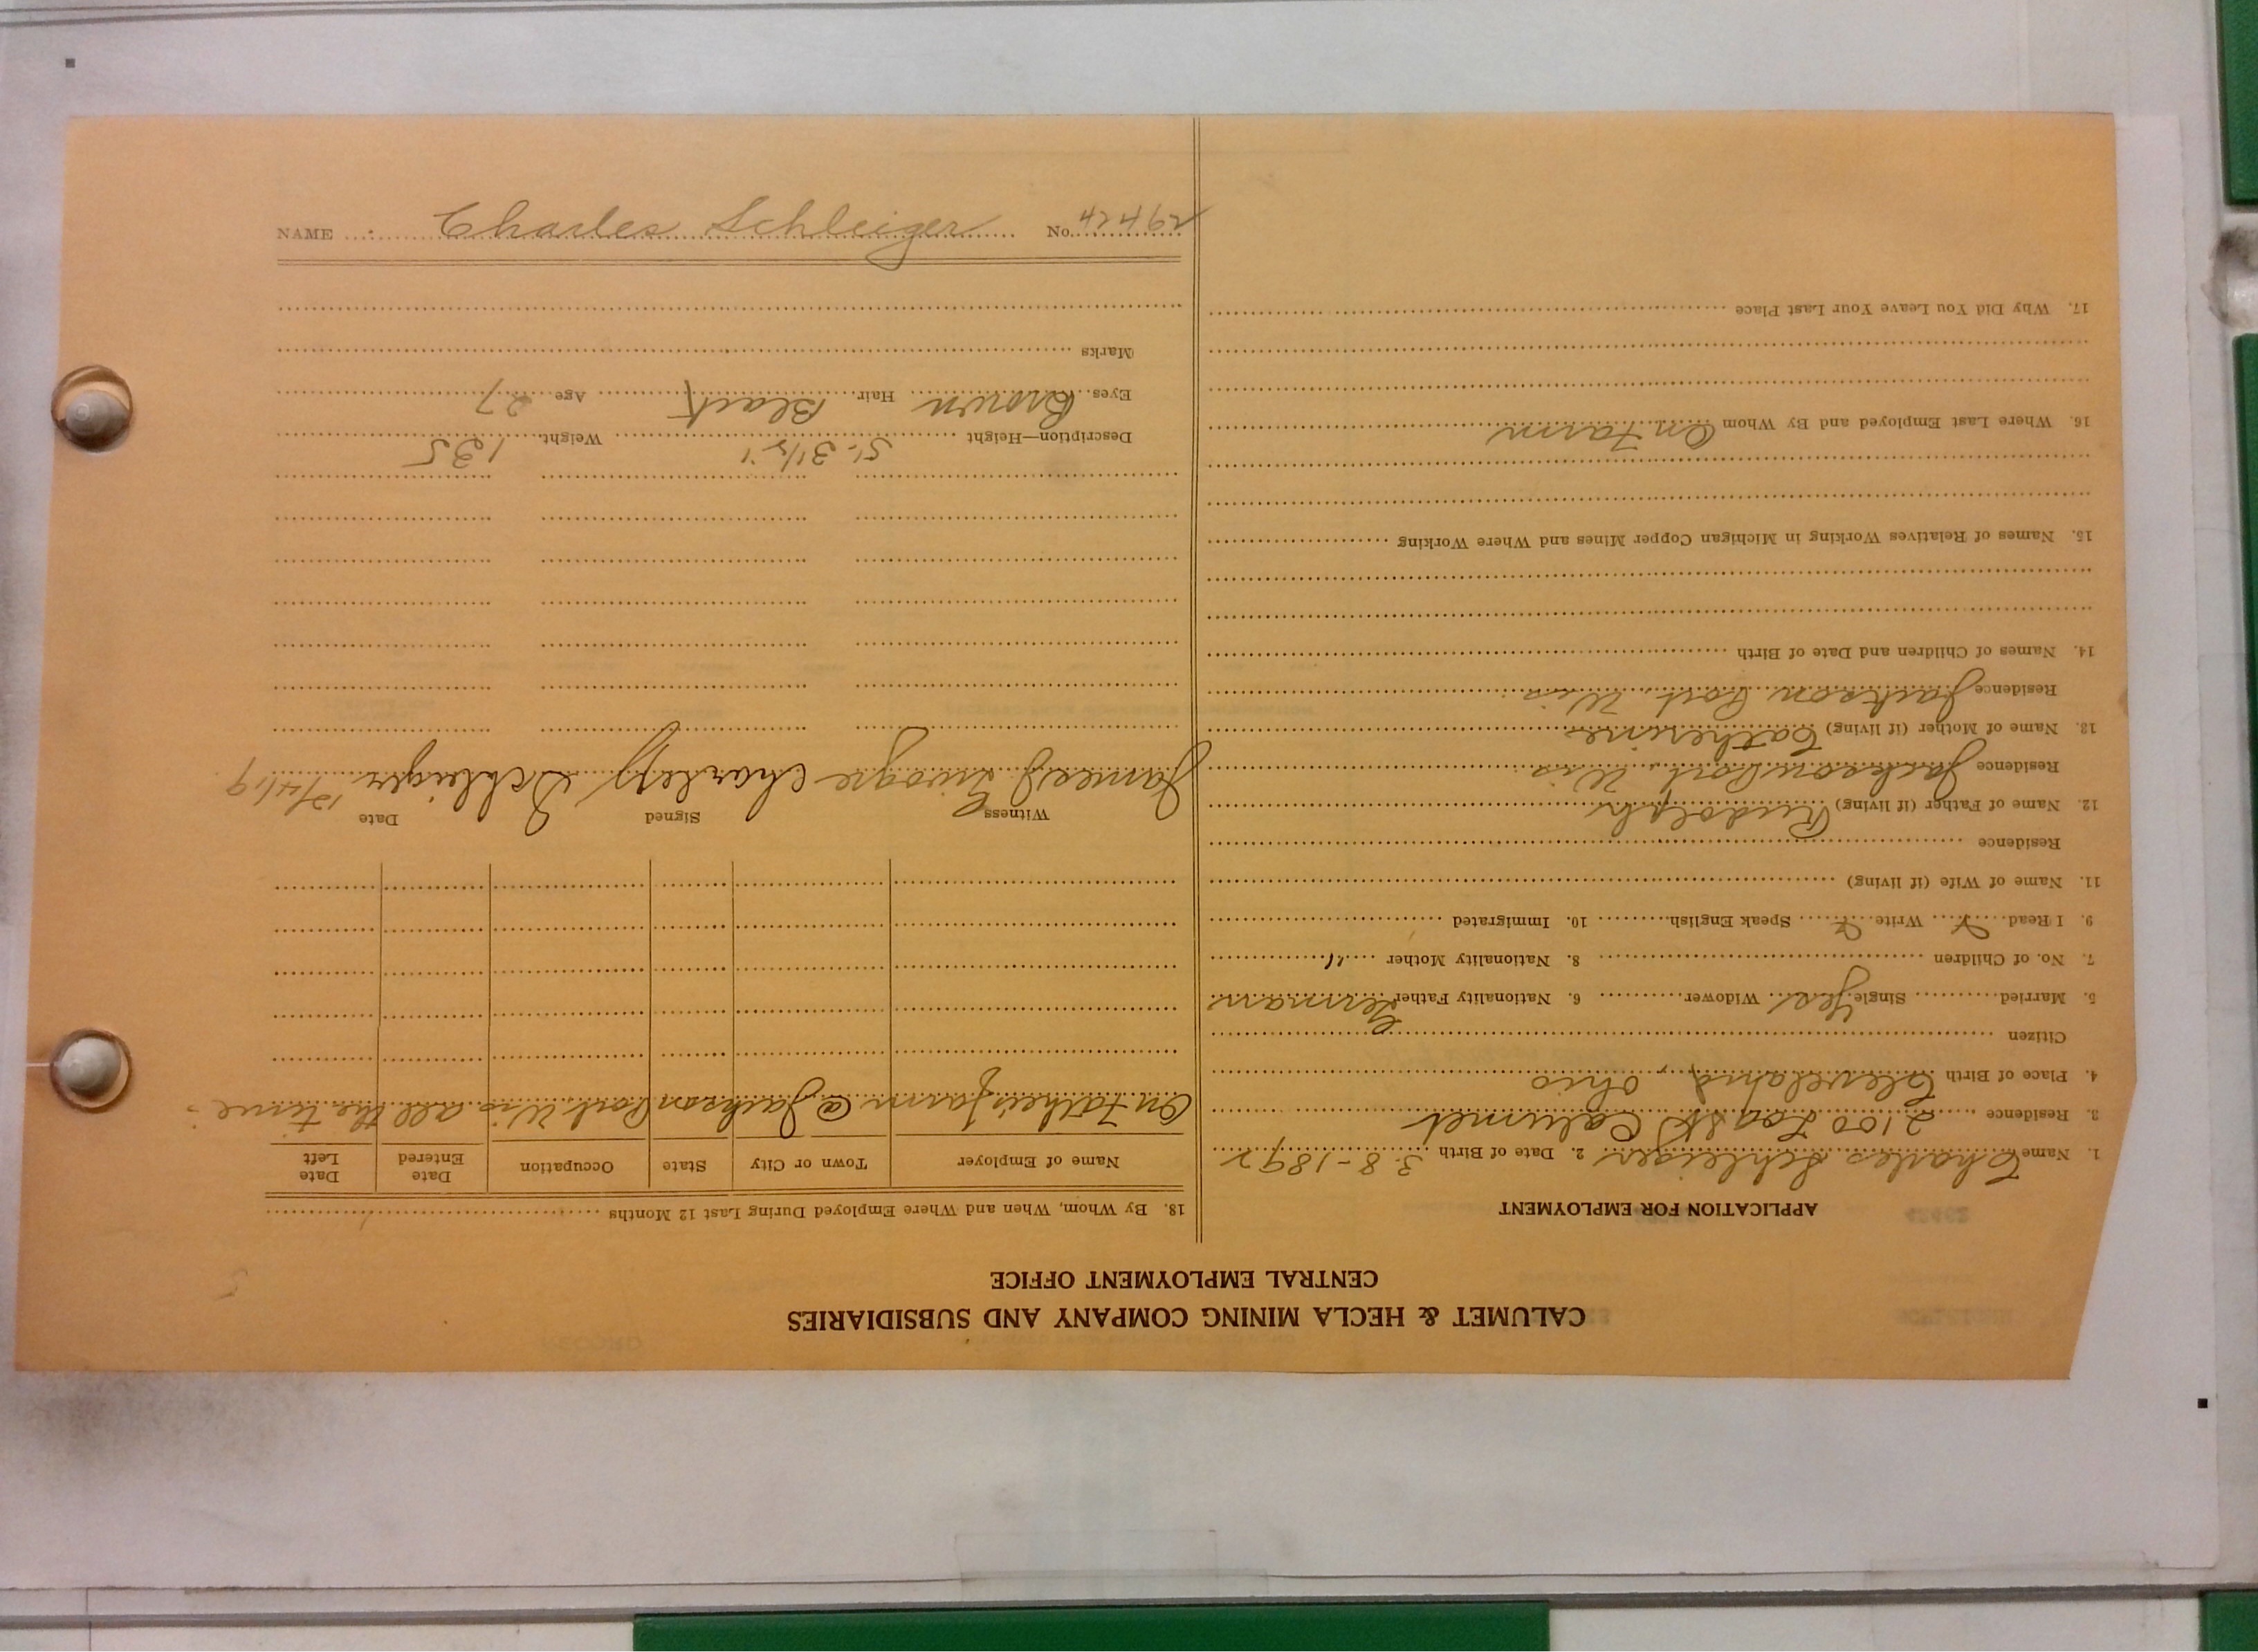 CALUMET & HECLA MINING COMPANY AND SUBSIDIARIES
CENTRAL EMPLOYMENT OFFICE
APPLICATION FOR EMPLOYMENT
1. Name Charles Schleiger 2. Date of Birth 3-8-1892
3. Residence 2100 Log St Calumet
4. Place of Birth Cleveland, Ohio
Citizen
5. Married Single Yes Widower 6. Nationality Father German
7. No. of Children 8. Nationality Mother "
9. I Read Write Speak English 10. Immigrated
11. Name of Wife (if living)
Residence
12. Name of Father (if living) Rudolph
Residence Jackson Port, Wis
13. Name of Mother (if living) Catherine
Residence Jackson Port, Wis.
14. Names of Children and Date of Birth
15. Names of Relatives Working in Michigan Copper Mines and Where Working
16. Where Last Employed and By Whom On Farm
17. Why Did You Leave Your Last Place
18. By Whom, When and Where Employed During Last 12 Months
Name of Employer Town or City State Occupation Date Entered Date Left
On Fathers farm @ Jackson Port, Wis all the time.
Witness Signed Date
James J Charles Schleiger 12/4/19
Description—Height 5'- 3 1/2" Weight 135
Eyes Brown Hair Black Age 27
Marks
NAME Charles Schleiger No. 42462